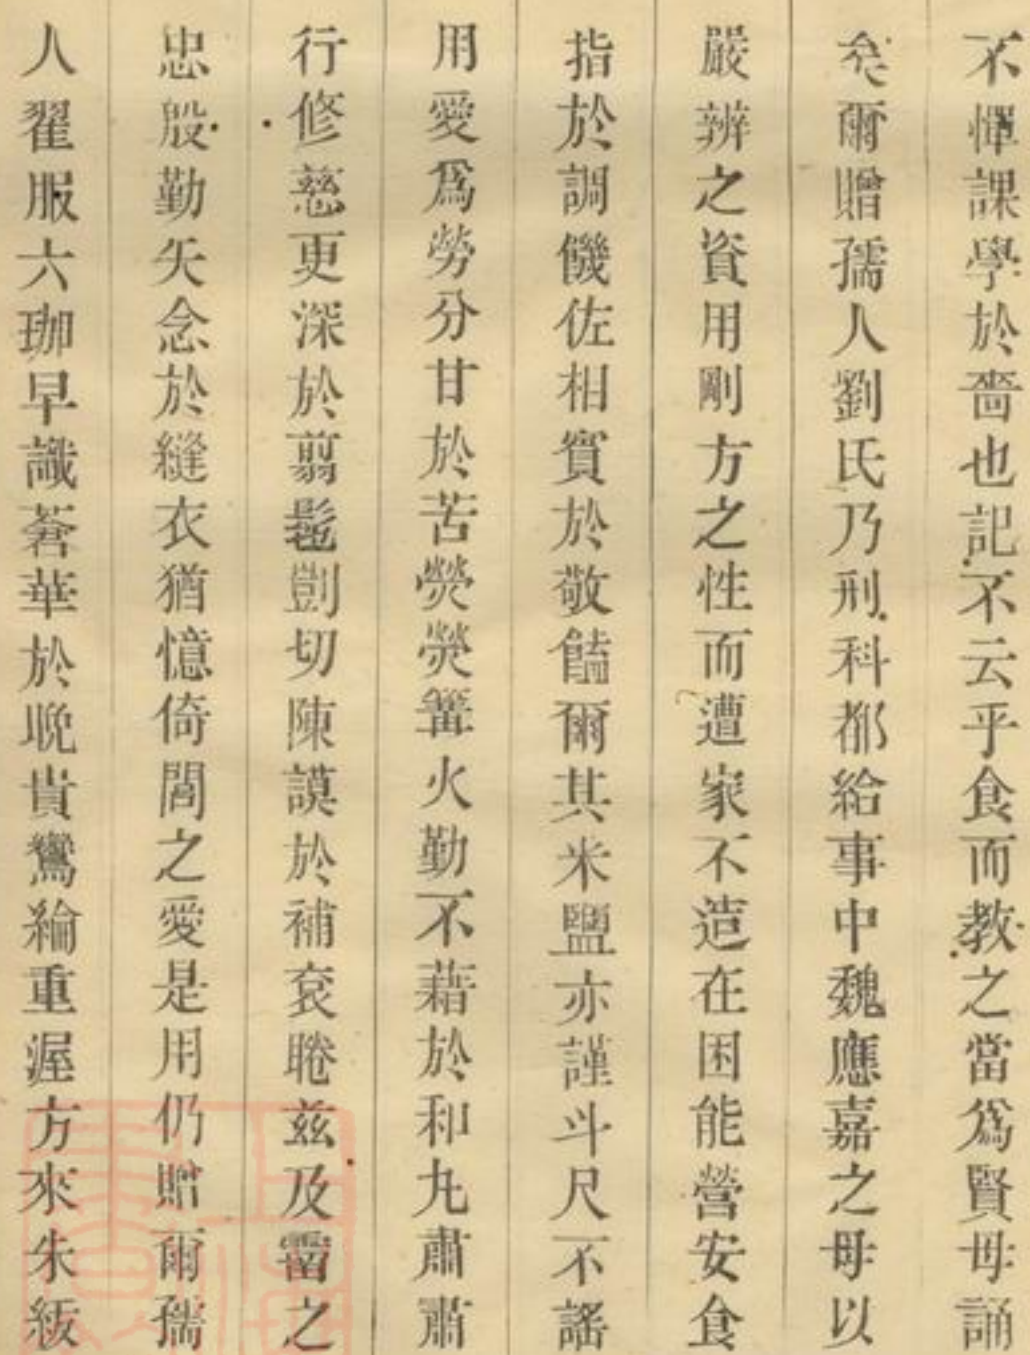 不憚課學於啬也記不云乎食而教之當爲賢母誦
矣爾贈孺人劉氏乃刑科都給事中魏應嘉之母以
嚴辨之資用剛方之性而遭家不造在困能營安食
指於調饑佐相賓於敬饁爾其米鹽亦謹斗尺不謠
用愛爲勞分甘於苦熒熒篝火勤不藉於和丸肅肅
行修慈更深於剪髢剴切陳謨於補袞睠兹及霤之
忠殷勤矢念於縫衣猶憶倚閭之愛是用仍贈爾孺
人翟服六珈早識蒼華於晚貴鸞綸重渥方來朱紱